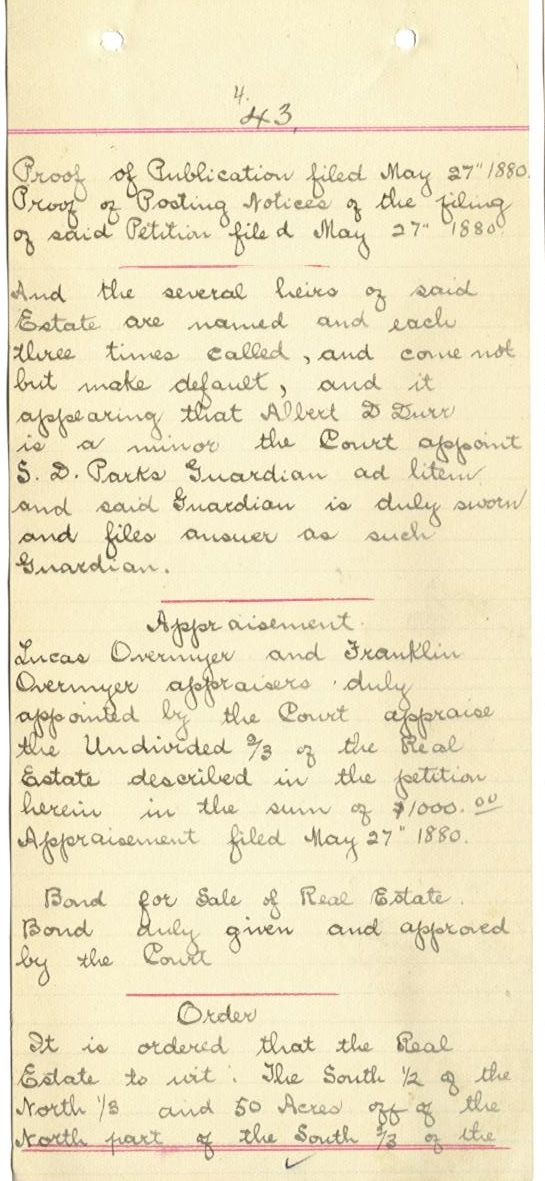 4.
43,
Proof of Publication filed May 27" 1880.
Proof of Posting Notices of the filing
of said Petition filed May 27" 1880
And the several heirs of said
Estate are named and each
three times called, and come not
but make default, and it
appearing that Albert D Durr
is a minor the Court appoint
S. D. Parks Guardian ad litem
and said Guardian is duly sworn
and files answer as such
Guardian.
Appraisement.
Lucas Overmyer and Franklin
Overmyer appraisers duly
appointed by the Court appraise
the Undivided 2/3 of the Real
Estate described in the petition
herein in the sum of $1000.00
Appraisement filed May 27" 1880.
Bond for Sale of Real Estate.
Bond duly given and approved
by the Court
Order
It is ordered that the Real
Estate to wit: The South 1/2 of the
North 1/3 and 50 Acres off of the
North part of the South 2/3 of the